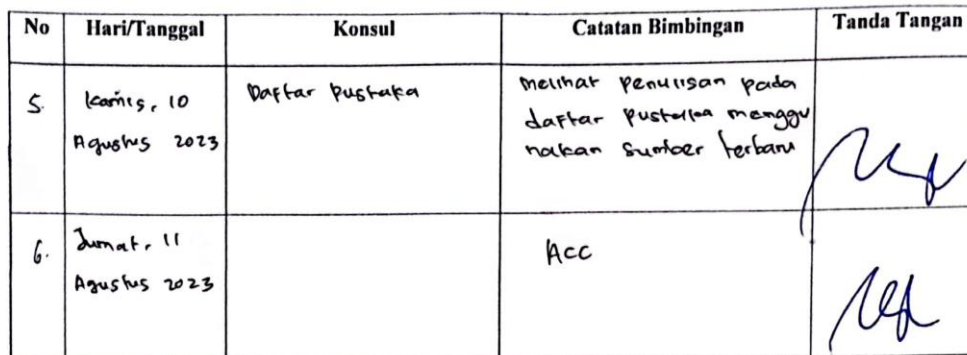 No Hari/Tanggal Konsul Catatan Bimbingan Tanda Tangan
5. Kamis, 10 Daftar Pustaka melihat penulisan pada
Agustus 2023 daftar pustaka menggu
nakan sumber terbaru
6. Jumat, 11 Acc
Agustus 2023